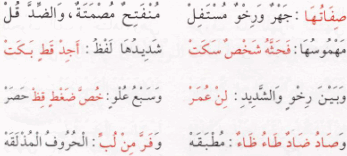 صِفَاتُهَا : جَهْرٌ وَرِخْوٌ مُسْتَفِلْ مُنْفَتِحٌ مُصْمَتَةٌ، وَالضِّدَّ قُلْ
مَهْمُوسُهَا : فَحَثَّهُ شَخْصٌ سَكَتْ شَدِيدُهَا لَفْظُ : أَجِدْ قَطٍ بَكَتْ
وَبَيْنَ رِخْوٍ وَالشَّدِيدِ : لِنْ عُمَرْ وَسَبْعُ عُلْوٍ : خُصَّ ضَغْطٍ قِظْ حَصَرْ
وَصَادُ ضَادٌ طَاءُ ظَاءٌ : مُطْبَقَهْ وَفَرَّ مِنْ لُبِّ : الْحُرُوفُ الْمُذْلَقَهْ